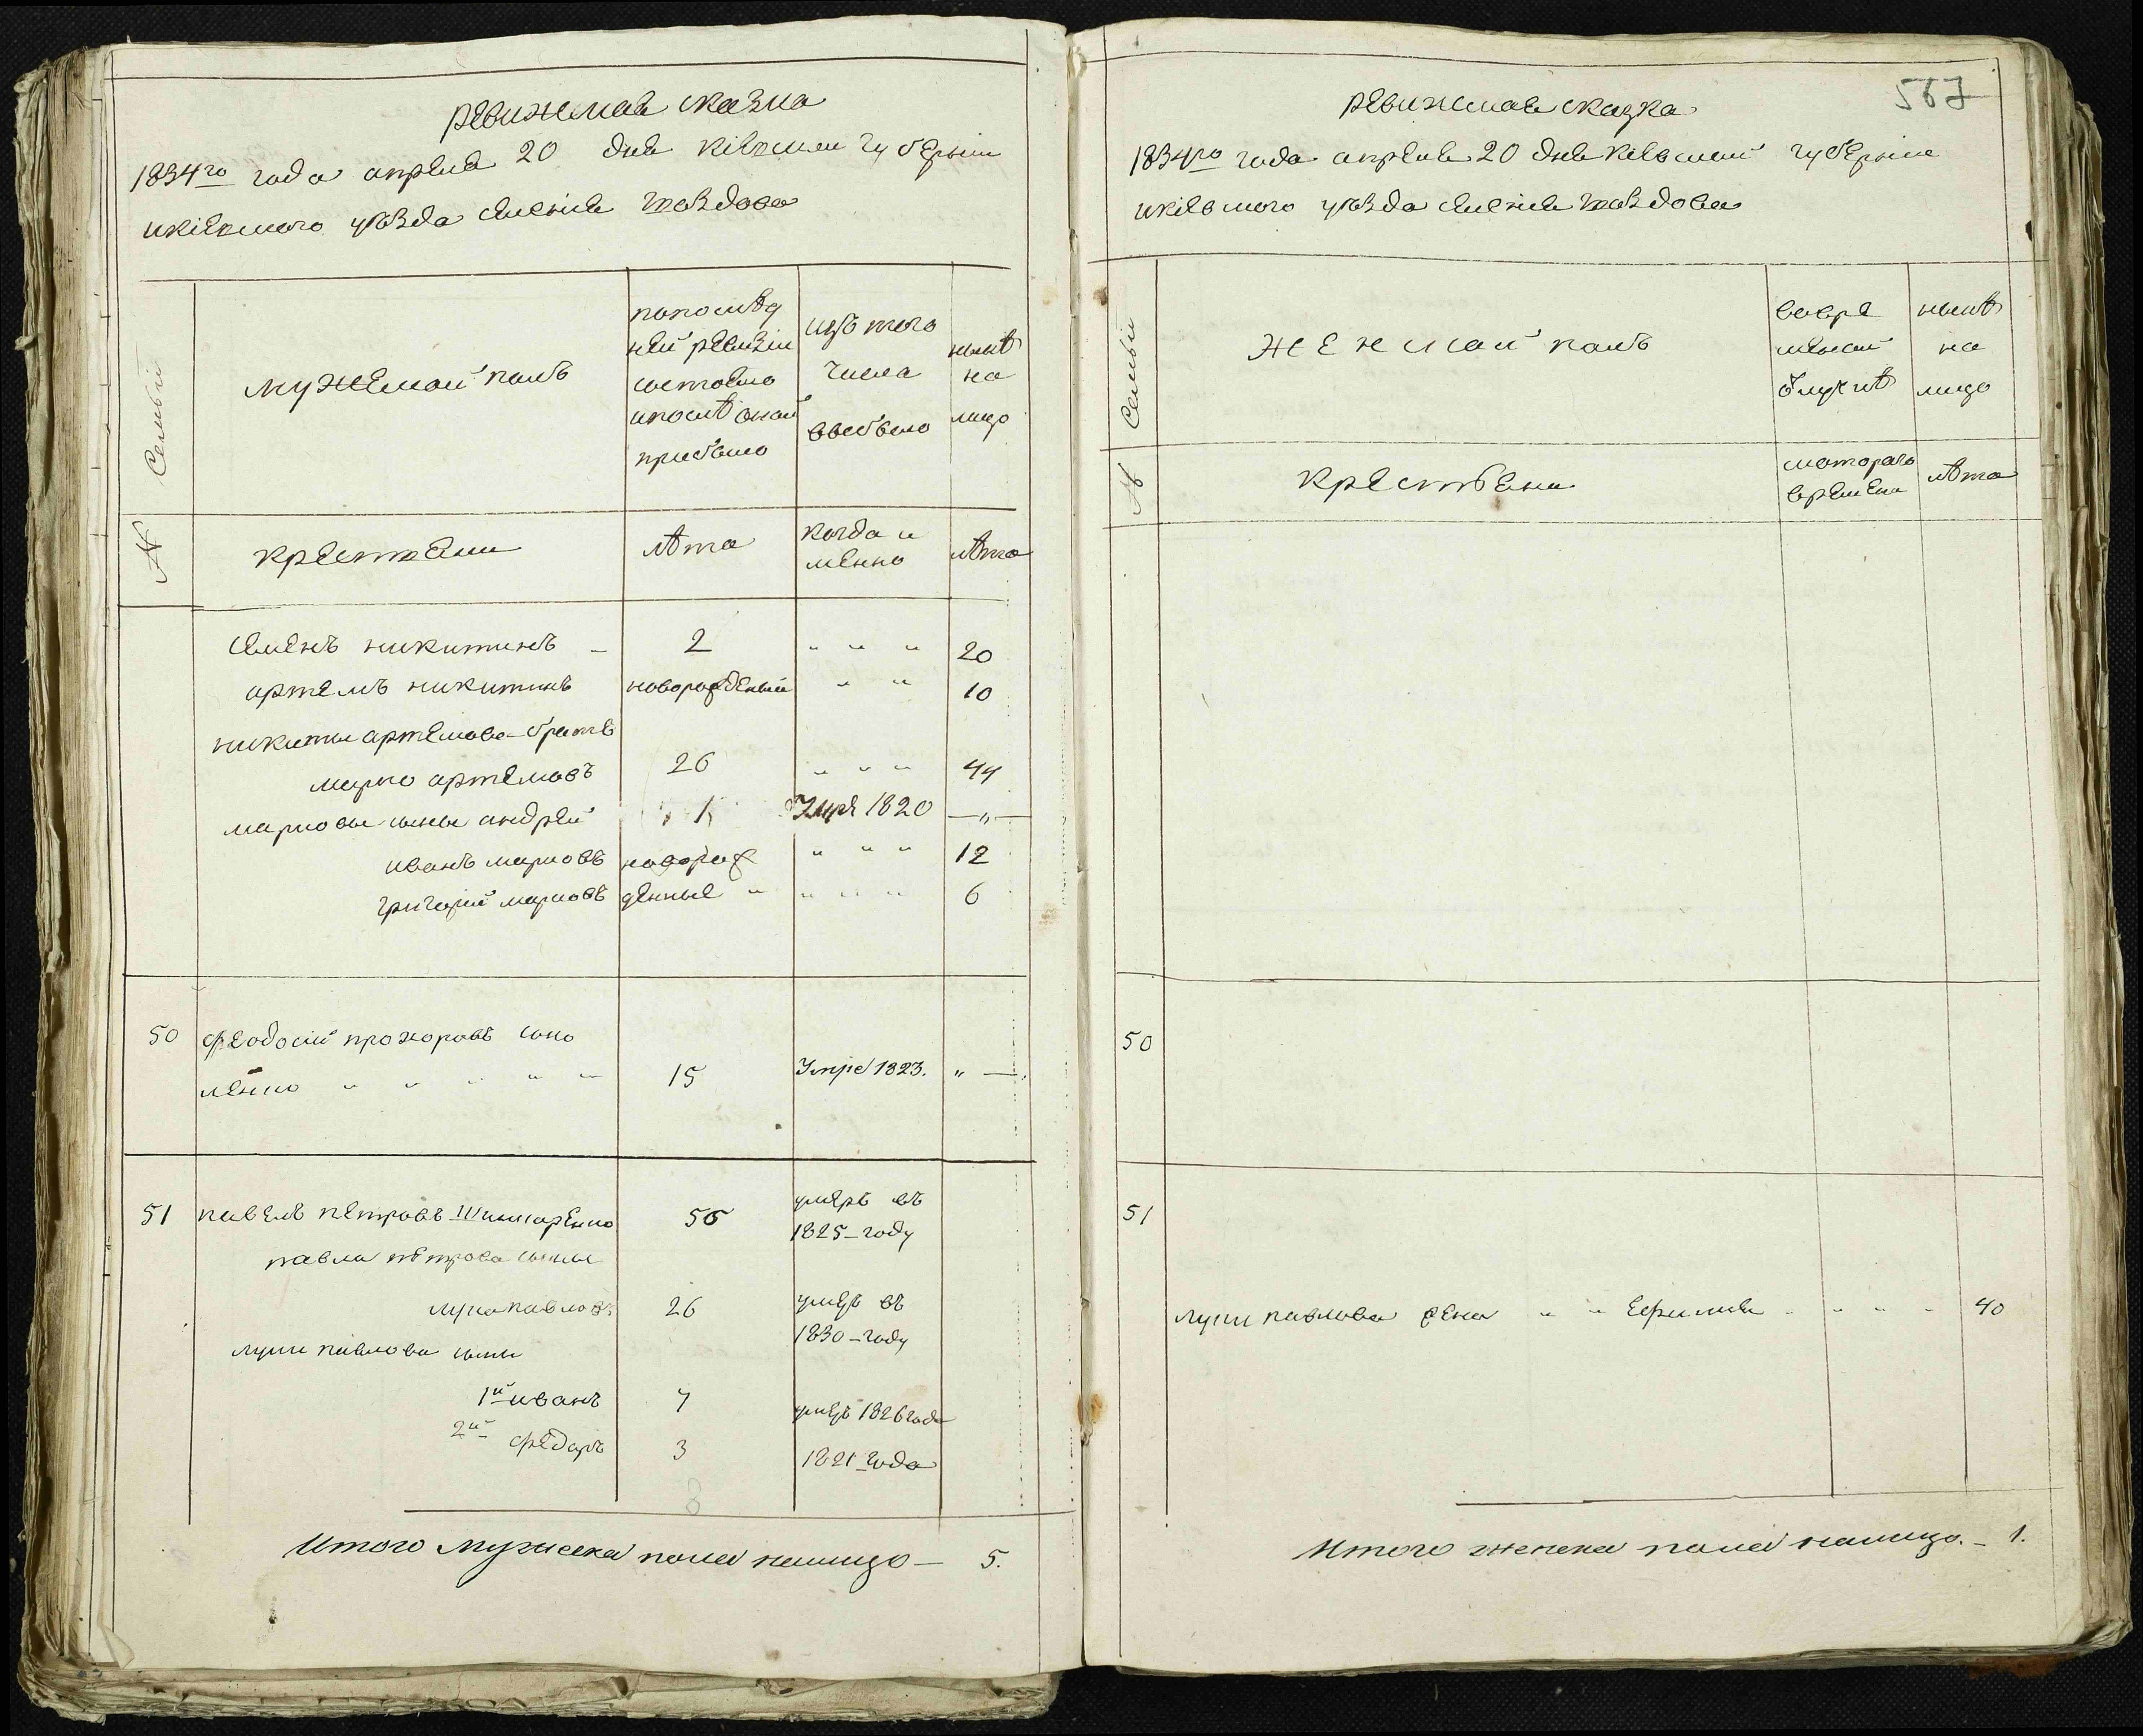 ревижская сказка
1834го года апреля 20 дня кіевской губерніи
икіевского уѣзда селенія гвоздова
Семьи
мужеской полъ
попослѣд
ней ревизіи
состояло
ипослѣ оной
прибыло
изъ того
числа
выбыло
нынѣ
на
лицо
№
крестяни
лѣта
когда и
менно
лѣта
Семенъ никитинъ 2 " " " 20
артемъ никитинъ новорожденый " " 10
никиты артемова братъ
марко артемовъ 26 " " " 44
марковы сыны андрей 1 Умре 1820 —"—
иванъ марковъ новорож " " " 12
григорій марковъ денные " " " " 6
50 Феодосій прохоровъ
" " " " 15 Умре 1823. " —
51 павелъ петровъ 56 умеръ въ
1825 – году
павла петрова сыны
лука павловъ 26 умеръ въ
1830 – году
луки павлова сыны
1й иванъ 7 умеръ 1826 года
2й федоръ 3 1821 года
8
Итого мужеска пола налицо — 5.
567
ревижская сказка
1834го года апреля 20 дня кіевской губерніи
икіевского уѣзда селенія гвоздова
Семьи
женской полъ
вовре
менной
отлучкѣ
нынѣ
на
лицо
№
крестьяни
которого
времени
лѣта
50
51
луки павлова жена " " Ефимія " " " " 40
Итого женска пола налицо. – 1.